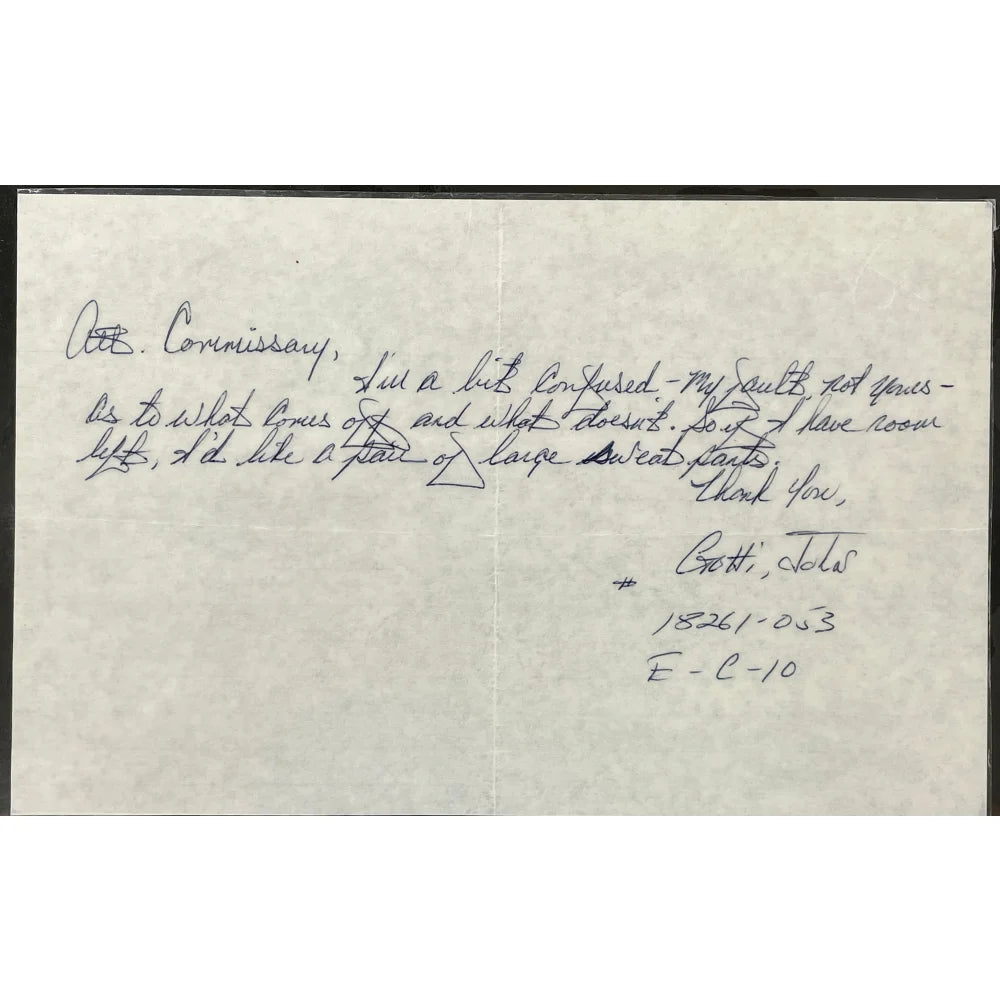 Att. Commissary,
I'm a bit confused - my fault, not yours -
as to what comes off and what doesn't. So if I have room
left, I'd like a pair of large sweat pants.
Thank You,
Gotti, John
#
18261-053
E-C-10